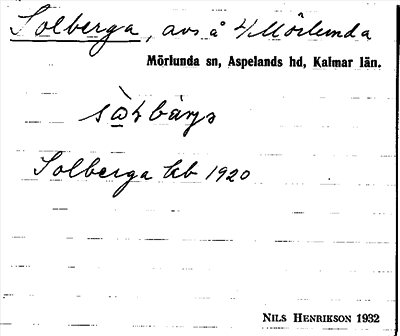 Solberga, avs å 4/ Mörlunda
Mörlunda sn, Aspelands hd, Kalmar län.
Solberga kb 1920
NILS HENRIKSON 1932